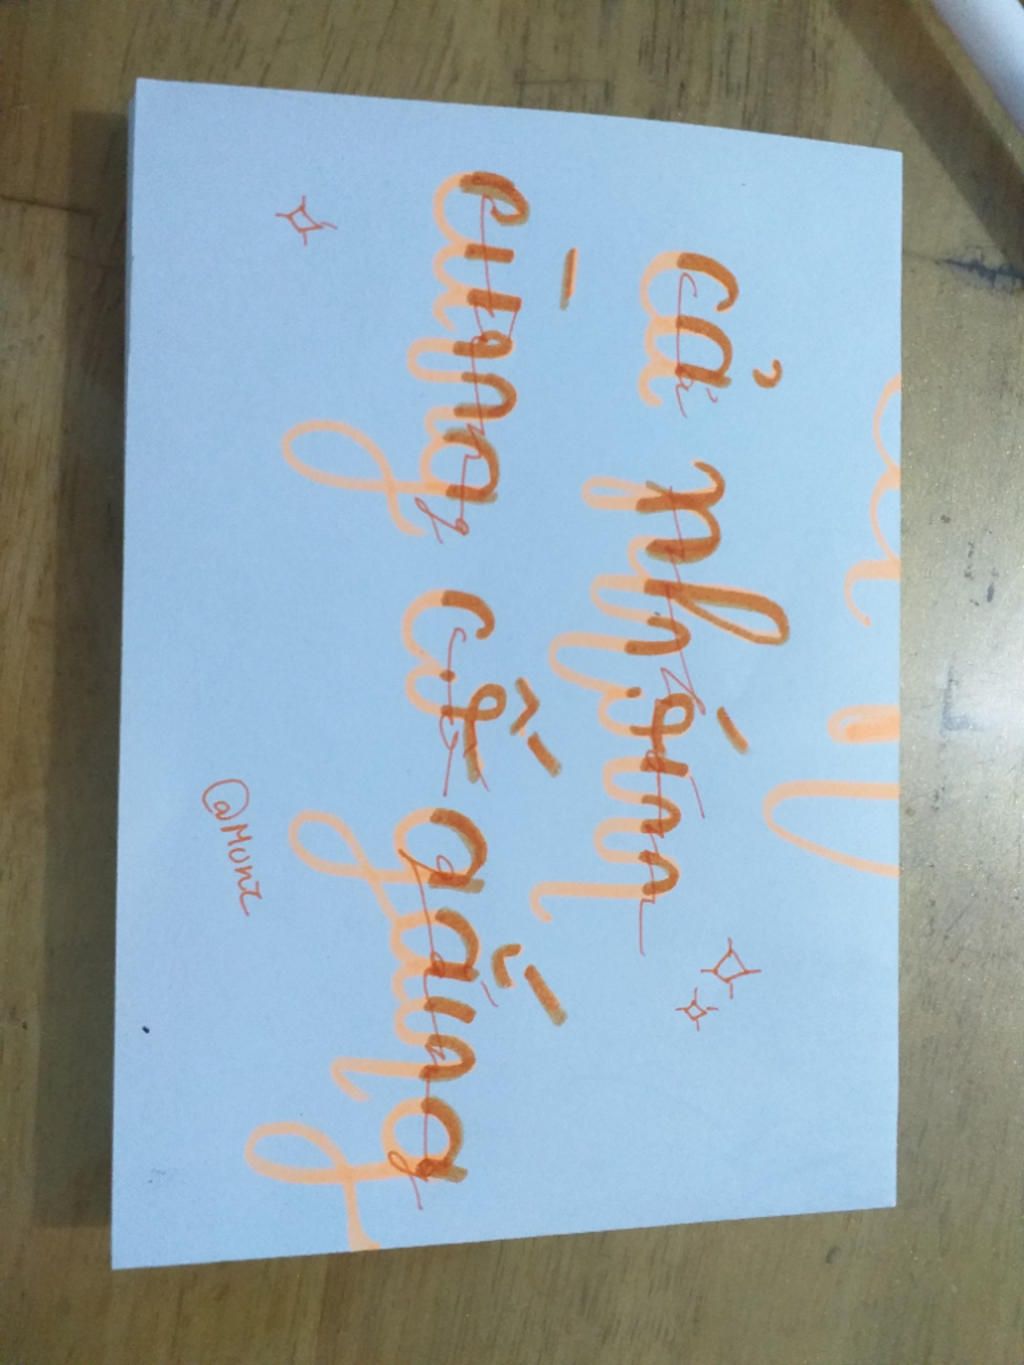 cả nhóm
cùng cố gắng
@Munz